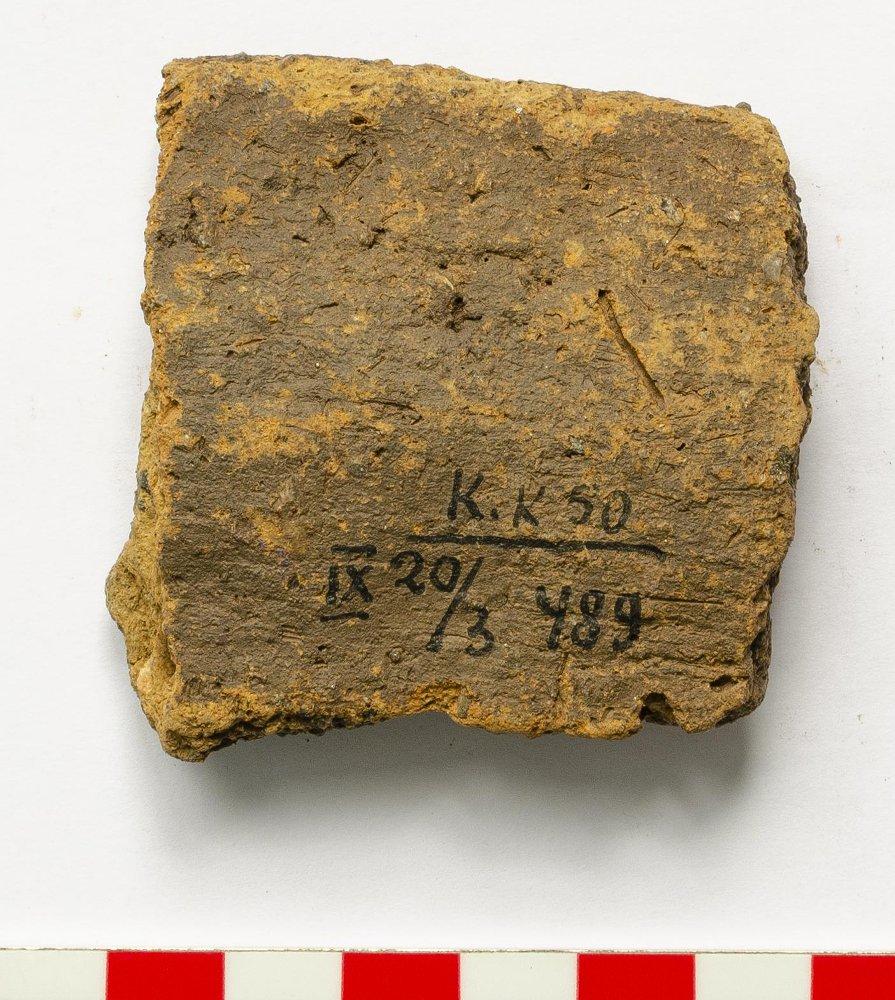 K. K 50
IX 20/3 489